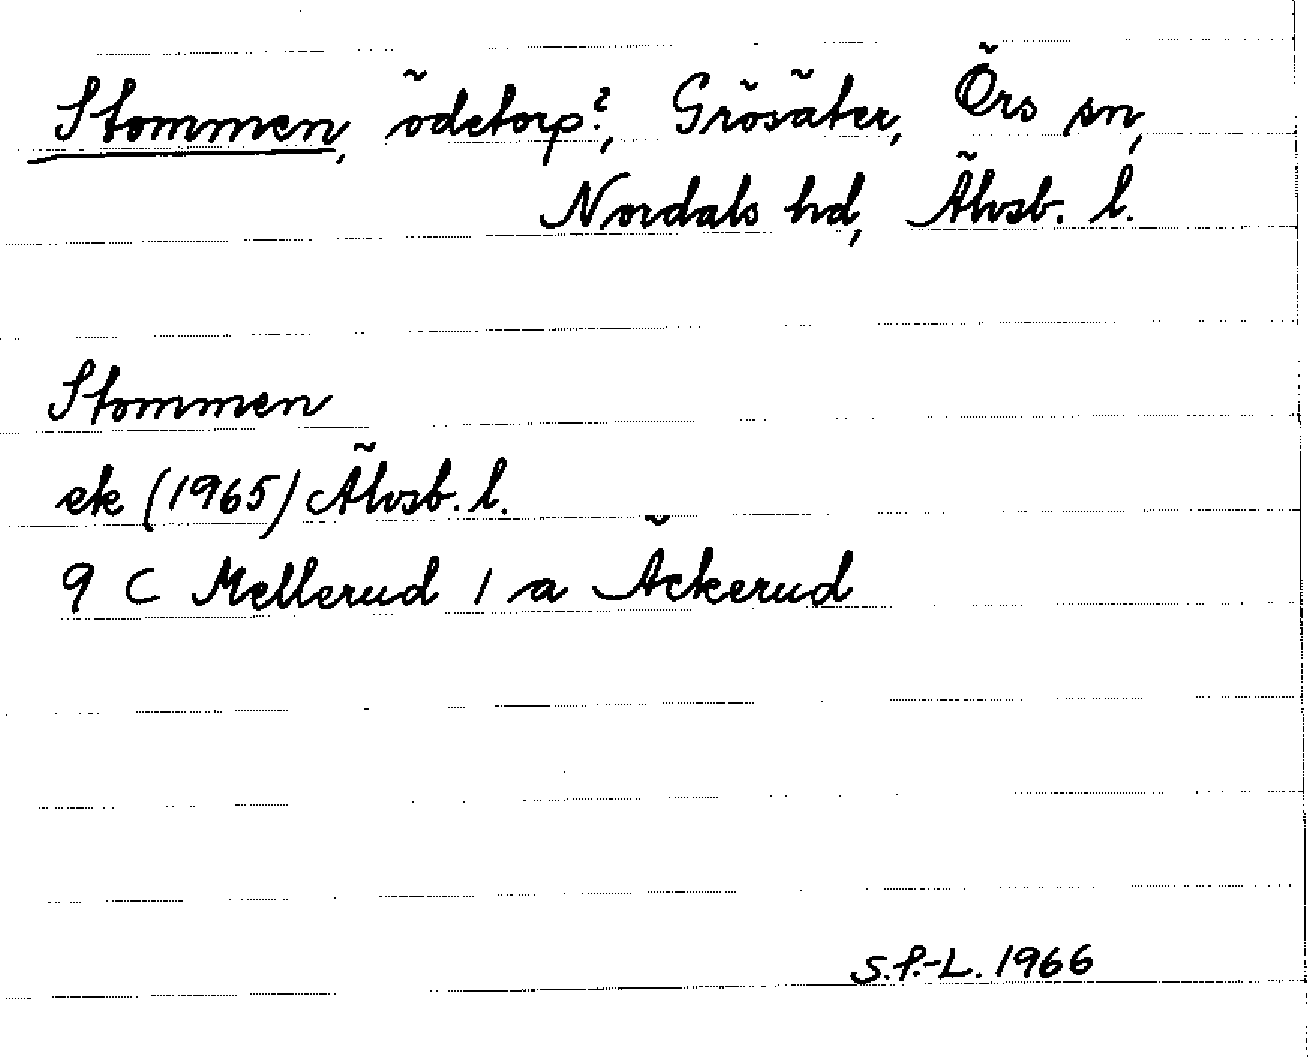 Stommen, ödetorp?, Grösäter, Örs sn,
Nordals hd, Älvsb. l.
Stommen
ek (1965) Älvsb. l.
9 C Mellerud 1 a Äckerud
S.P.-L. 1966